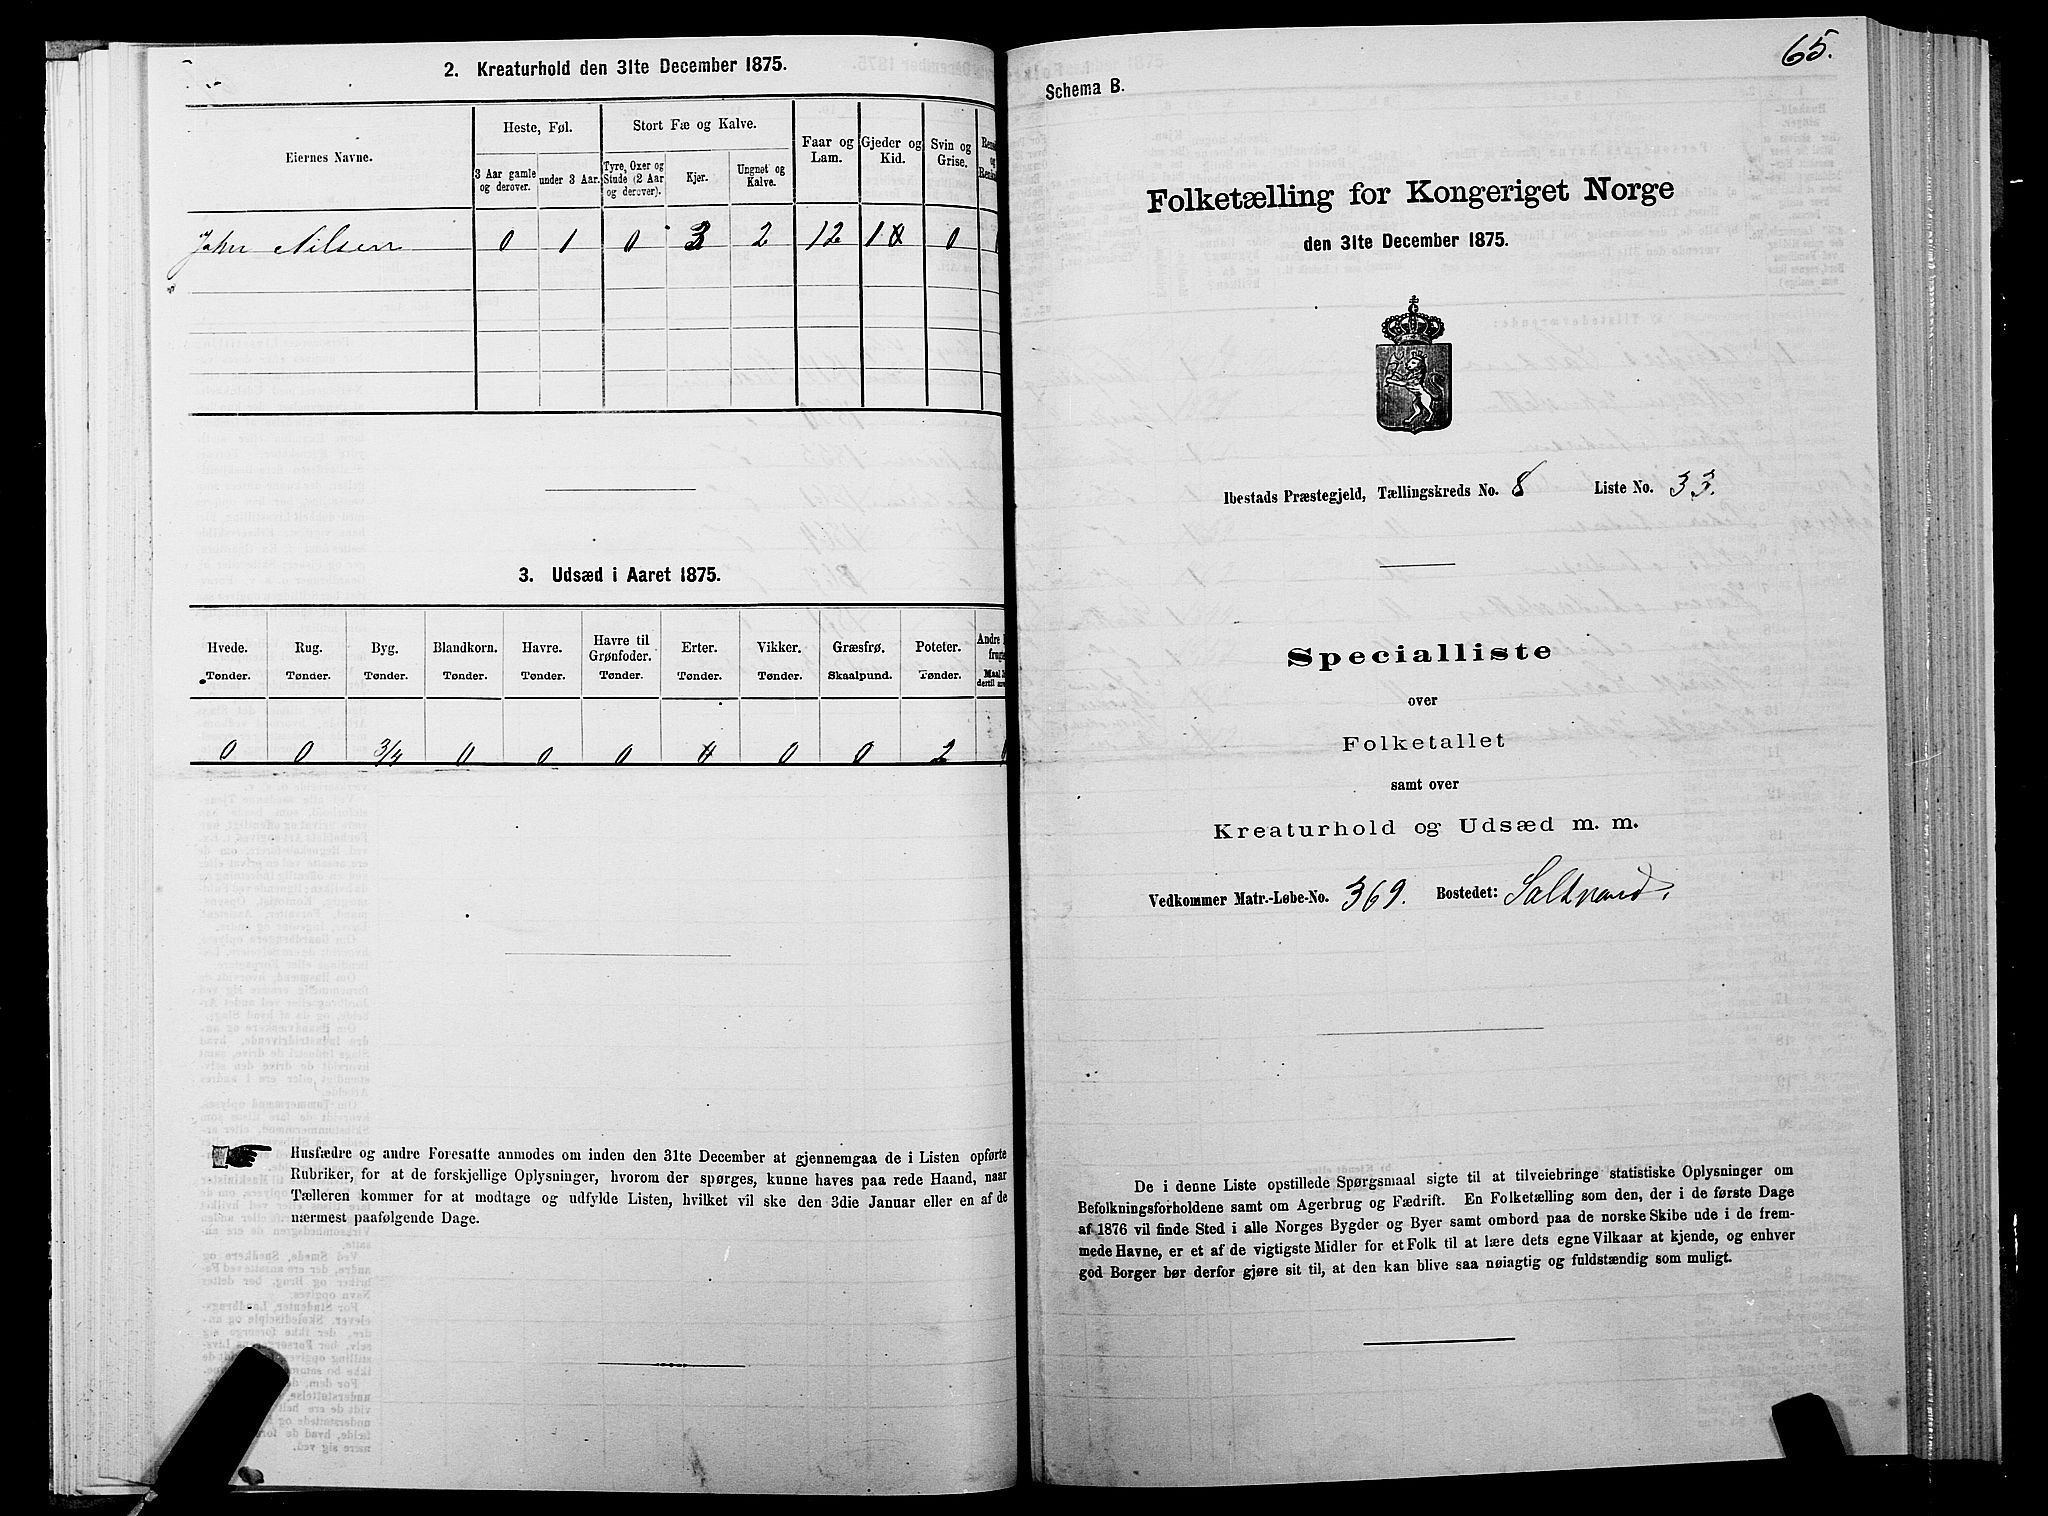 2. Kreaturhold den 31te December 1875.
Eiernes Navne.
Heste, Føl.
Stort Fæ og Kalve.
Faar og Lam.
Gjeder og Kid.
Svin og Grise.
3 Aar gamle og derover.
under 3 Aar.
Tyre, Oxer og Stude (2 Aar og derover).
Kjer.
Ungnøt og Kalve.
John Nilsen 0 1 0 3 2 12 0
3. Udsæd i Aaret 1875.
Hvede. Rug. Byg. Blandkorn. Havre. Havre til Grønfoder. Erter. Vikker. Græsfrø. Poteter.
Tønder. Tønder. Tønder. Tønder. Tønder. Tønder. Tønder. Tønder. Skaalpund. Tønder.
0 0 3/4 0 0 0 0 0 0 2
Husfædre og andre Foresatte anmodes om inden den 31te December at gjennemgaa de i Listen opførte
Rubriker, for at de forskjellige Oplysninger, hvorom der spørges, kunne haves paa rede Haand, naar
Tælleren kommer for at modtage og udfylde Listen, hvilket vil ske den 3die Januar eller en af de
nærmest paafølgende Dage.
65.
Schema B.
Folketælling for Kongeriget Norge
den 31te December 1875.
Ibestads Præstegjeld, Tællingskreds No. 8 Liste No. 33.
Specialliste
over
Folketallet
samt over
Kreaturhold og Udsæd m. m.
Vedkommer Matr.-Løbe-No. 369. Bostedet: Saltvand.
De i denne Liste opstillede Spørgsmaal sigte til at tilveiebringe statistiske Oplysninger om
Befolkningsforholdene samt om Agerbrug og Fædrift. En Folketælling som den, der i de første Dage
af 1876 vil finde Sted i alle Norges Bygder og Byer samt ombord paa de norske Skibe ude i de frem-
mede Havne, er et af de vigtigste Midler for et Folk til at lære dets egne Vilkaar at kjende, og enhver
god Borger bør derfor gjøre sit til, at den kan blive saa nøiagtig og fuldstændig som muligt.